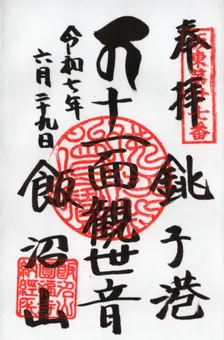 坂東第廿七番
奉拝
銚子港
十一面観世音
飯沼山
令和七年
六月二十九日